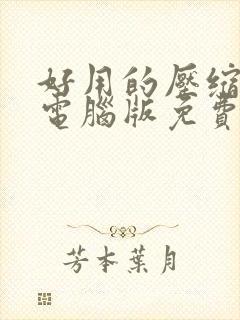 好用的壓縮
電腦版免費
芳本葉月